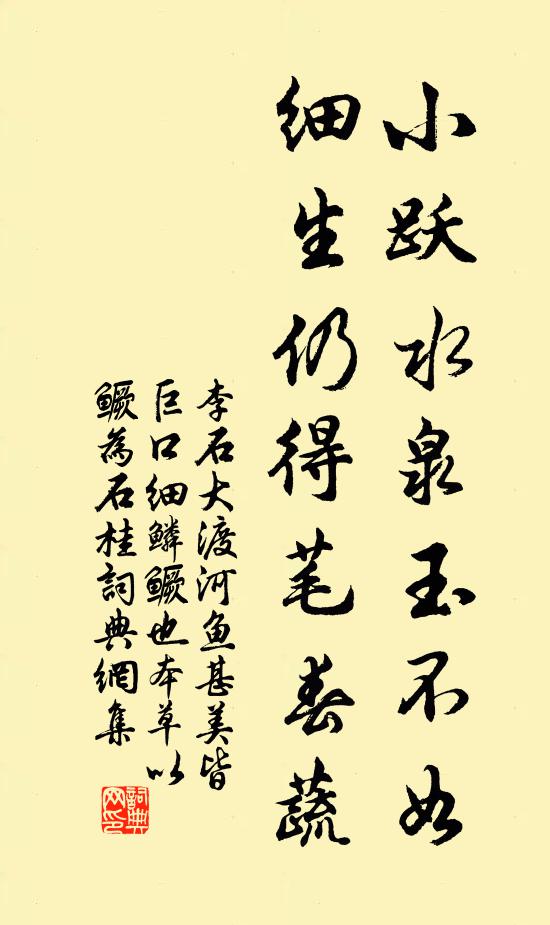 小跃水泉玉不如
细生仍得芼春蔬
李石大渡河鱼甚美皆
巨口细鳞鳜也本草以
鳜为石桂词典網集
詞典
网印